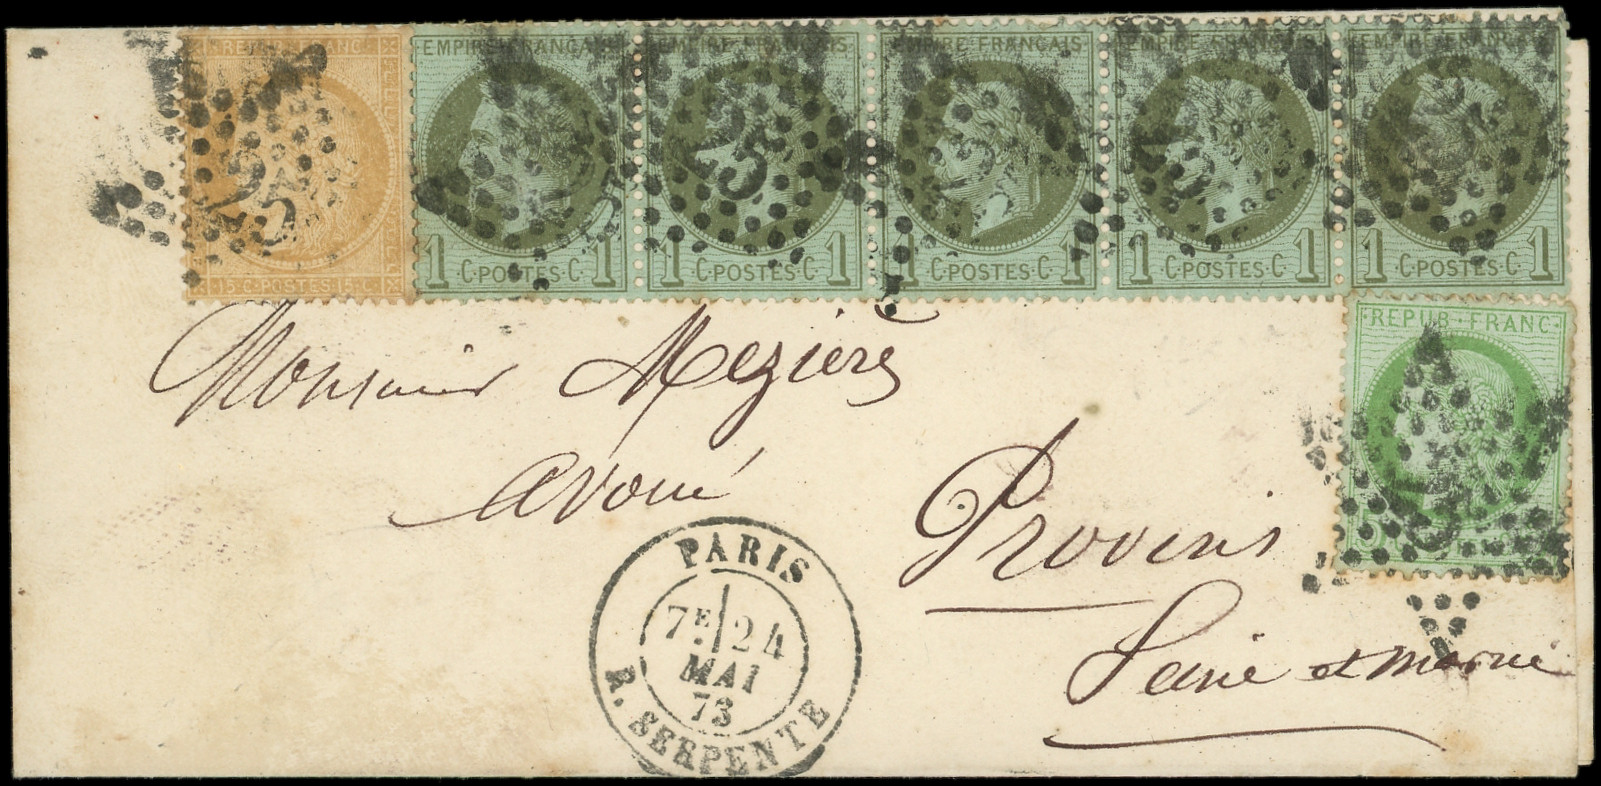 REPUB. FRANC.
15·C·POSTES·15·C.
25
EMPIRE FRANÇAIS
1 C·POSTES·C 1
EMPIRE FRANÇAIS
1 C·POSTES·C 1
EMPIRE FRANÇAIS
1 C·POSTES·C 1
EMPIRE FRANÇAIS
1 C·POSTES·C 1
EMPIRE FRANÇAIS
1 C·POSTES·C 1
·REPUB·FRANC·
Monsieur Mezières
avoué
Provins
Seine et marne
PARIS
7E 24
MAI
73
R. SERPENTE